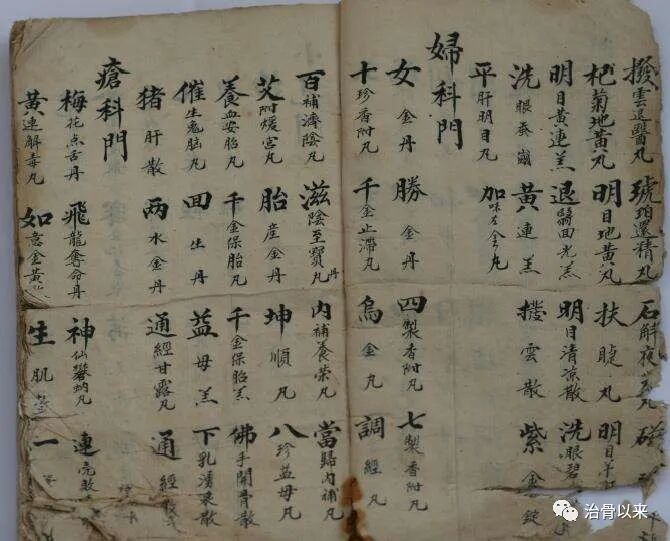 撥雲退翳丸 琥珀還精丸 石斛夜光丸
杞菊地黃丸 明目地黃丸 扶睫丸 明目羊
明目黃連羔 退翳面光羔 明目清凉散 洗眼碧
洗眼蚕 黃連羔 撥雲散 紫金錠
平肝明目丸 加味左金丸
婦科門
女金丹 勝金丹 四製香附丸 七製香附丸
十珍香附丸 千金止滯丸 烏金丸 調經丸
百補濟陰丸 滋陰至寶丸丹 內補養荣丸 當歸內補丸
艾附煖宮丸 胎產金丹 坤順丸 八珍益母丸
養血安胎丸 千金保胎丸 千金保胎羔 佛手開骨散
催生兔脑丸 回生丹 益母羔 下乳湧泉散
猪肝散 两水金丹 通經甘露丸 通經
瘡科門
梅花点舌丹 飛龍奪命丹 神仙 丸 連
黃連解毒丸 如意金黃 生肌 一
治骨以来